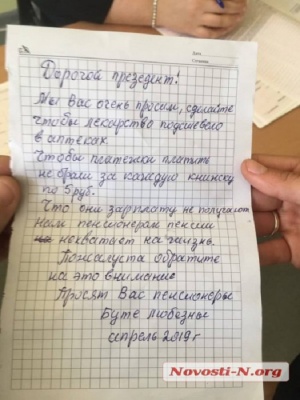 Дорогой президент!
Мы Вас очень просим, сделайте
чтобы лекарство подешевело
в аптеках
Чтобы платежки платить
не брали за каждую книжку
по 5 руб.
Что они зарплату не получают
нам пенсионерам пенсии
нехватает на жизнь.
Пожалуста обратите
на это внимание
Просят Вас пенсионеры
Буте любезны
апрель 2019 г
Novosti-N.org